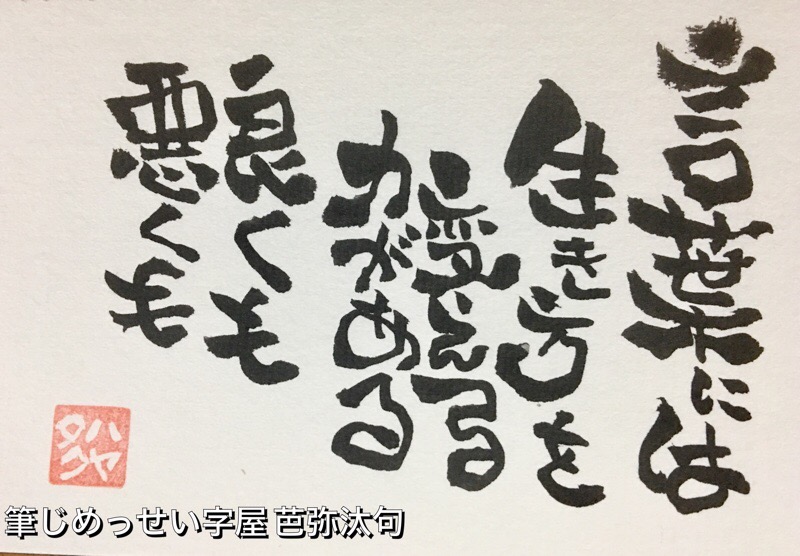 言葉には
生き方を
変える
力がある
良くも
悪くも
ハヤ
タク
筆じめっせい字屋 芭弥汰句